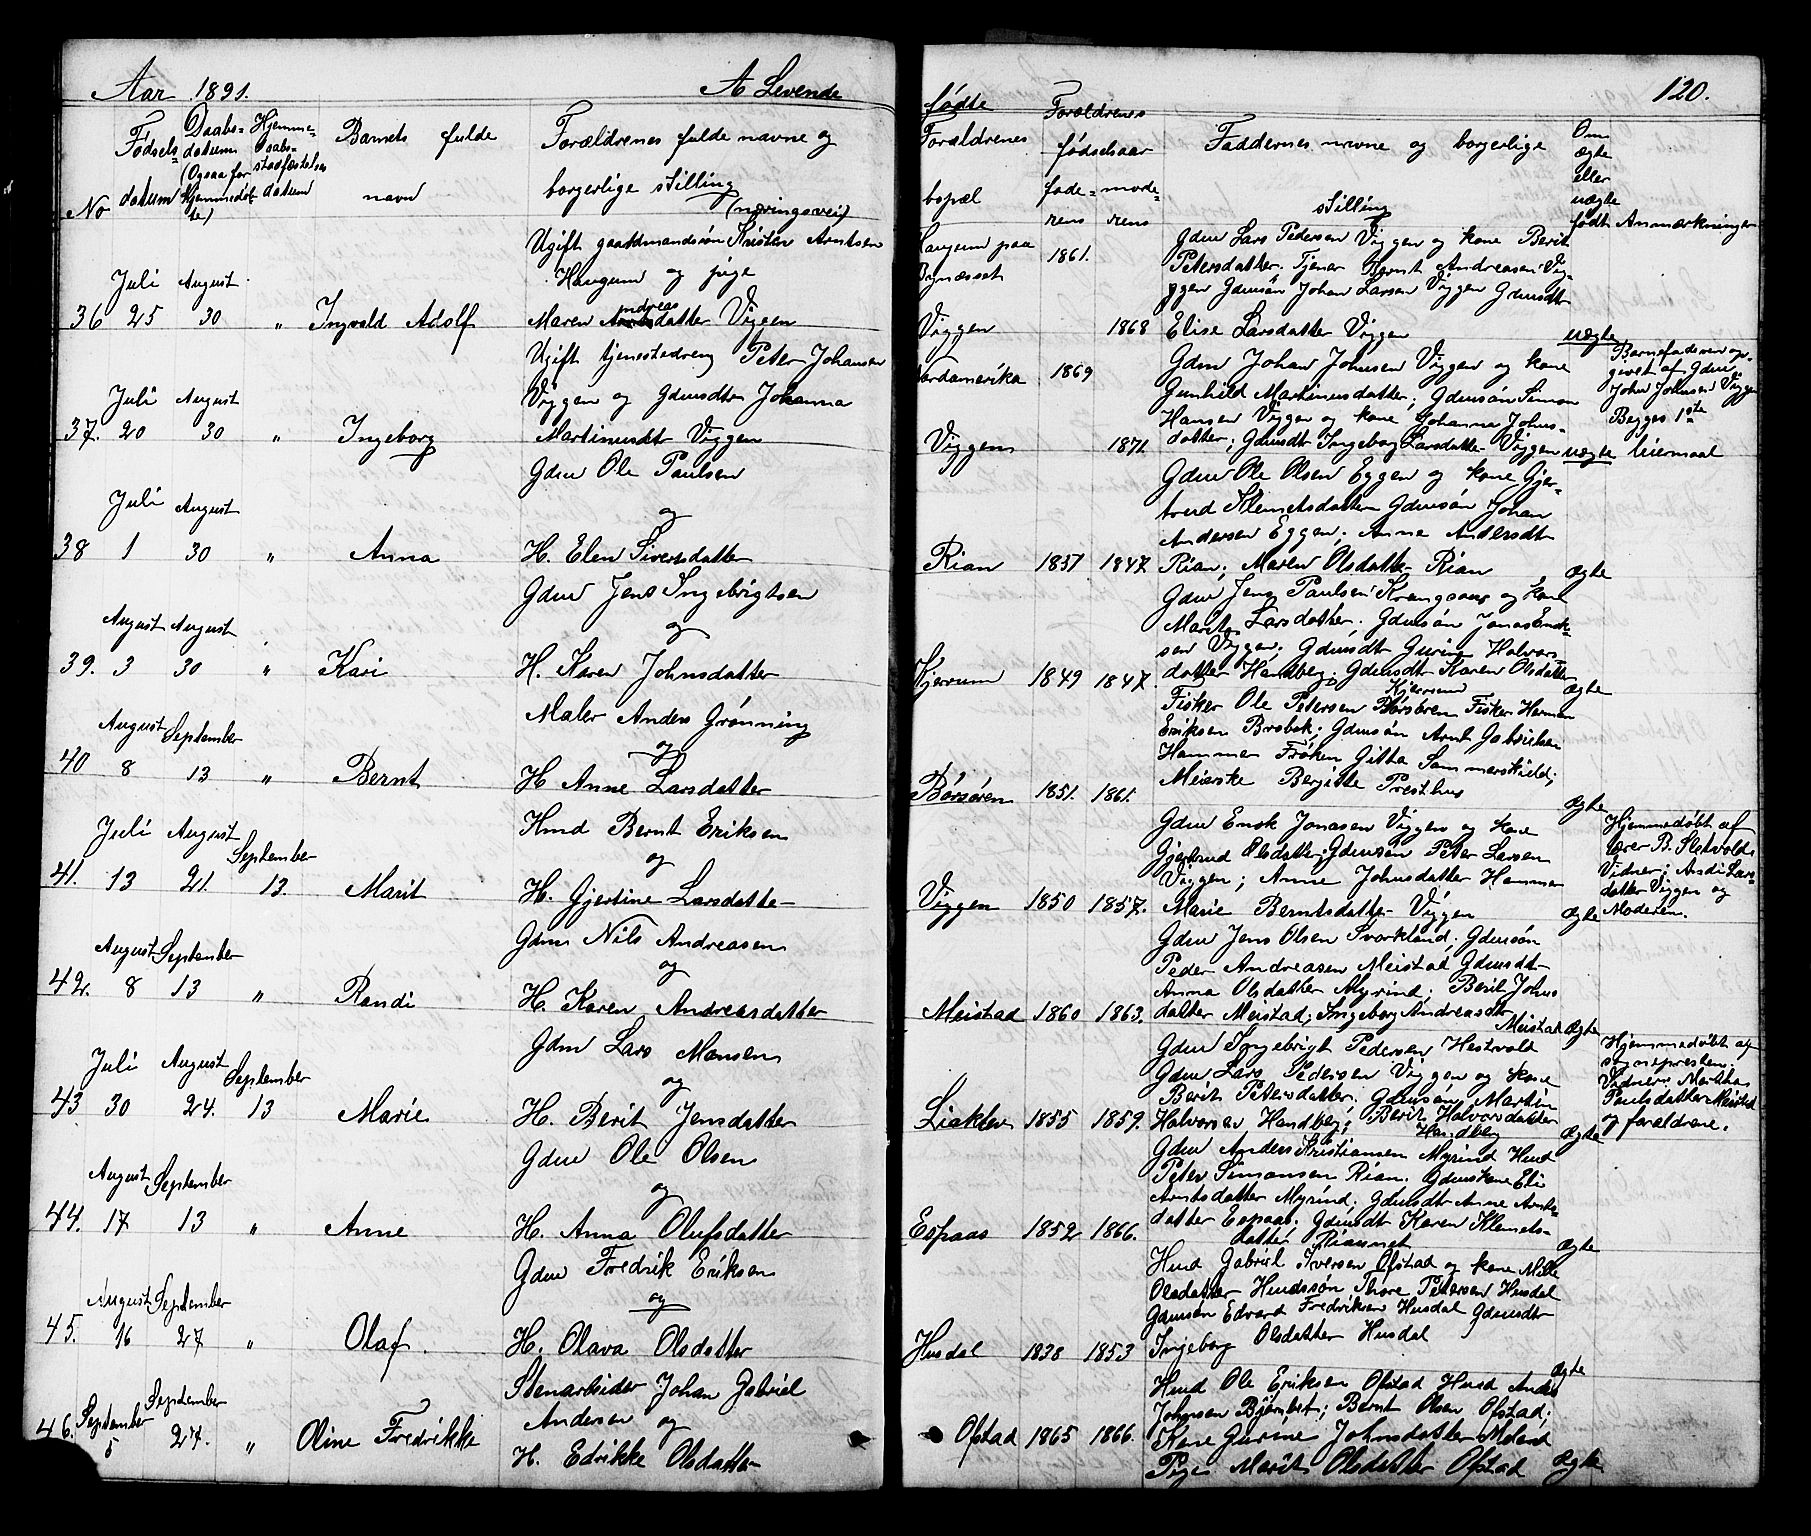 Aar 1891. A Levende
No
Fødsels= datum
Daabs= datum (Ogsaa for Hjemmedøb= te)
Hjemme= daabs= stadfæstelses datum
Barnets fulde navn
Forældrenes fulde navne og
borgerlige stilling
(næringsvei)
Ugift gaardmandssøn Kristen Arntsen
Haugum og pige
Juli August
36 25 30 " Ingvald Adolf Maren Andreasdatter Viggen
Ugift tjenestedreng Peter Johansen
Viggen og Gdmsdtr Johanna
Juli August
37. 20 30 " Ingeborg Martinusdtr Viggen
Gdm Ole Paulsen
Juli August og
38 1 30 " Anna H. Elen Siversdatter
Gdm Jens Ingebrigtsen
August August og
39. 3 30 " Kari H. Karen Johnsdatter
Maler Anders Grønning
August September og
40 8 13 " Bernt H Anne Larsdatter
Hmd Bernt Eriksen
Juli August September og
41. 13 21. 13. Marit H. Gjertine Larsdatter
Gdm Nils Andreasen
August September og
42. 8 13 " Randi H. Karen Andreasdatter
Gdm Lars Monsen
Juli August September og
43 30 24. 13 Marie H. Berit Jensdatter
Gdm Ole Olsen
August September og
44. 17 13 " Anne H. Anna Olufsdatter
Gdm Fredrik Eriksen
August September og
45. 16 27 " Olaf. H. Olava Olsdatter
Stenarbeider Johan Gabriel
September September Andersen og
46. 5 27. " Oline Fredrikke H. Edrikke Olsdatter
120.
fødte
Forældrenes bopæl
Forældrenes fødselsaar
fade= rens mode= rens
Faddernes navne og borgerlige
stilling
Om ægte eller uægte født
Anmærkninger
Haugum paa 1861. Gdm Lars Pedersen Viggen og kone Berit
Bynæsset Petersdatter. Tjener Bernt Andreasen Vig=
ggen Gdmsøn Johan Larsen Viggen Gdmsdtr
Viggen 1868 Elise Larsdatter Viggen uægte
Nordamerika 1869 Gdm Johan Johnsen Viggen og kone
Gunhild Martinusdatter; Gdmsøn Simon
Hansen Viggen og kone Johanna Johns=
Viggen 1871. datter; Gdmsdtr Ingeborg Larsdatter Viggen uægte
Barnefaderen op=
givet af Gdm
John Johnsen Viggen
Begges 1ste
leiermaal
Gdm Ole Olsen Eggen og kone Gjer=
trud Klemetsdatter Gdmsøn Johan
Andersen Eggen; Anne Andersdtr
Rian 1851 1847 Rian; Maren Olsdatter Rian ægte
Gdm Jens Paulsen Krangsaas og kone
Marit Larsdatter. Gdmsøn Jonas Enok=
sen Viggen; Gdmsdtr Guring Halvors
Kjerrum 1849 1847. datter Handberg; Gdmsdtr Karen Olsdatter
Kjerrum ægte
Fisker Ole Petersen Børsøren Fisker Herman
Eriksen Brobak; Gdmsøn Arnt Gabrielsen
Hammer Frøken Gitta Sommerskield;
Børsøren 1851. 1861. Meierske Bergitte Presthus ægte
Gdm Enok Jonasen Viggen og kone
Gjertrud Olsdatter; Gdmsøn Peter Larsen
Viggen; Anne Johnsdatter Hammer
Viggen 1850 1857. Marie Berntsdatter Viggen ægte
Hjemmedøbt af
lærer B. Sletvold.
Vidner; Andi Lars=
datter Viggen og
Moderen.
Gdm Jens Olsen Svorkland; Gdmsøn
Peder Andreasen Meistad Gdmsdtr
Anna Olsdatter Myrind; Berit Johns
Meistad 1860 1863. datter Meistad; Ingeborg Andreasdtr
Meistad ægte
Gdm Ingebrigt Pedersen Hestvold
Gdm Lars Pedersen Viggen og kone
Berit Petersdatter; Gdmsøn Martin
Liaklev 1855 1859. Halvorsen Handberg; Berit Halvorsdatter
Handberg ægte
Hjemmedøbt af
sognepresten.
Vidner: Martha
Paulsdatter Meistad
og forældrene.
Gdm Anders Kristiansen Myrind Hmd
Peter Simonsen Rian. Gdmskone Eli
Arntsdatter Myrind; Gdmsdtr Anne Arnts=
Espaas 1852 1866. datter Espaas; Gdmsdtr Karen Klemets=
datter Riaunet ægte
Hmd Gabriel Iversen Ofstad og kone Mille
Olsdatter Hmdssøn Thore Petersen Husdal
Gdmsøn Edvard Fredriksen Husdal Gdmsdtr
Husdal 1838 1853 Ingeborg Olsdatter Husdal
ægte
Hmd Ole Eriksen Ofstad Hmd Anders
Johnsen Bjørnbet; Bernt Olsen Ofstad;
Ofstad 1865 1866. Kone Gurine Johnsdatter Meland
Pige Marit Olsdatter Ofstad ægte